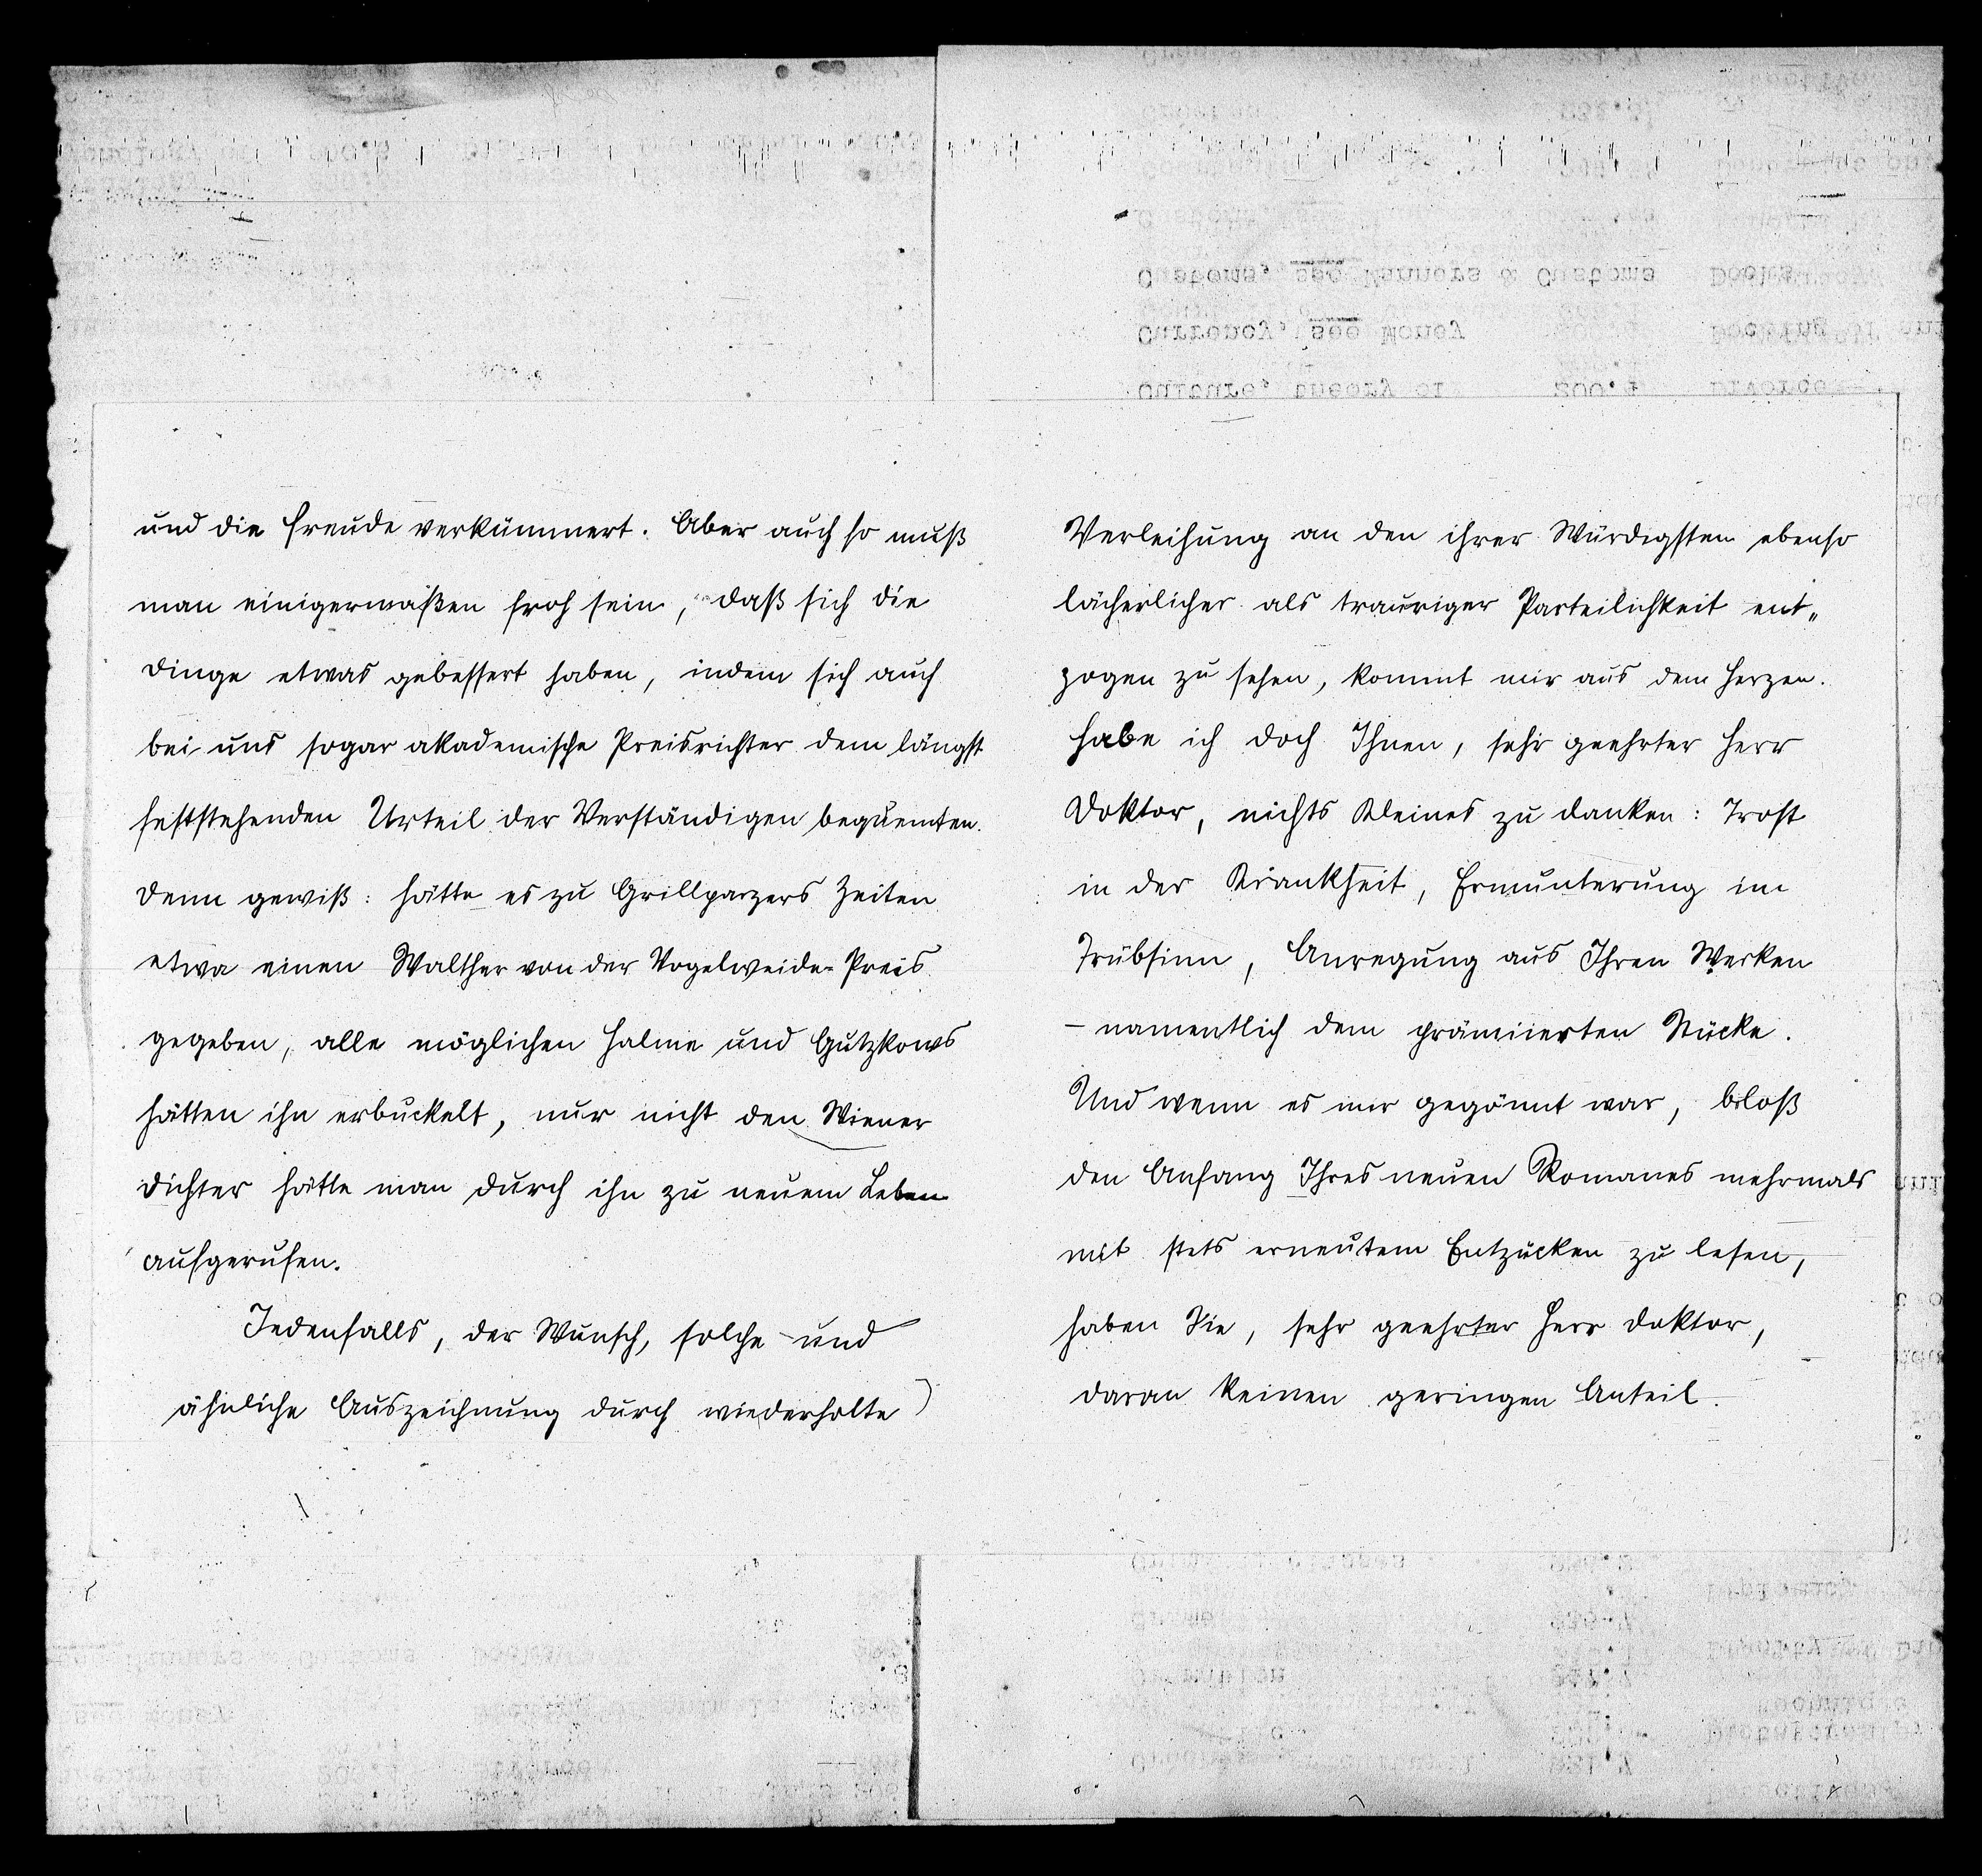 und die Freude verkümmert. Aber auch so muß
man einigermaßen froh sein, daß sich die
Dinge etwas gebessert haben, indem sich auch
bei uns sogar akademische Preisrichter dem längst
feststehenden Urteil der Verständigen bequemten.
Denn gewiß: hätte es zu Grillparzers Zeiten
etwa einen Walther von der Vogelweide-Preis
gegeben, alle möglichen Halme und Gutzkows
hätten ihn erbuckelt, nur nicht den Wiener
Dichter hätte man durch ihn zu neuem Leben
aufgerufen.
Jedenfalls, der Wunsch, solche und
ähnliche Auszeichnung durch wiederholte
Verleihung an den ihrer Würdigsten ebenso
lächerlicher als trauriger Parteilichkeit ent„
zogen zu sehen, kommt mir aus dem Herzen.
Habe ich doch Ihnen, sehr geehrter Herr
Doktor, nichts Kleines zu danken: Trost
in der Krankheit, Ermunterung im
Trübsinn, Anregung aus Ihren Werken
– namentlich dem prämiierten Stücke.
Und wenn es mir gegönnt war, bloß
den Anfang Ihres neuen Romanes mehrmals
mit stets erneutem Entzücken zu lesen,
haben Sie, sehr geehrter Herr Doktor,
daran keinen geringen Anteil.